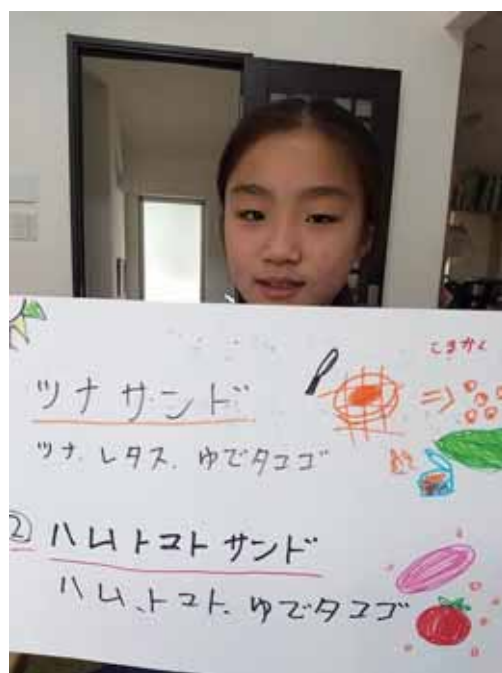 こまかく
ツナサンド
ツナ、レタス、ゆでタマゴ
② ハムトマトサンド
ハム、トマト、ゆでタマゴ